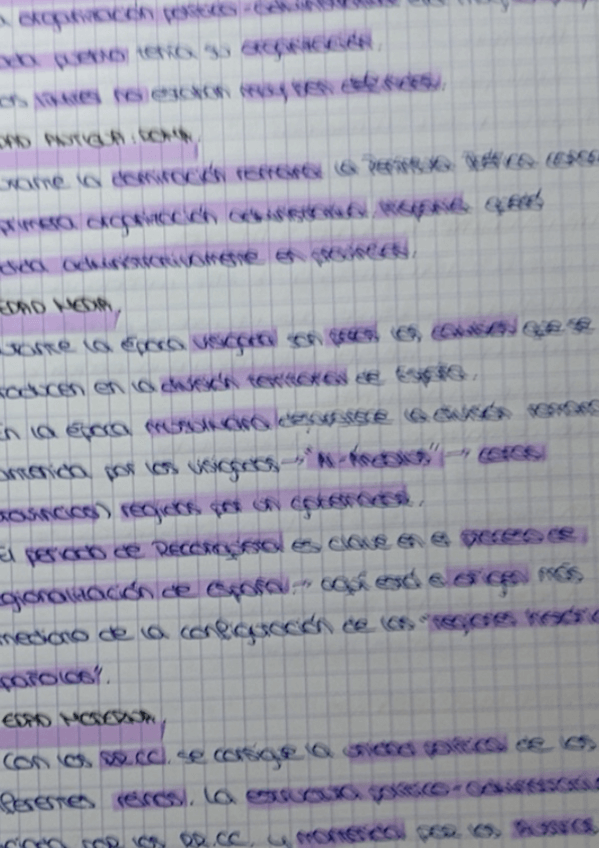 organización político-
cada pueblo tenía su organización.
los límites no estaban muy bien definidos.
DAD ANTIGUA: ROMA.
durante la dominación romana la Península Ibérica
primera organización administrativa. Hispania quedó
administrativamente en provincias.
EDAD MEDIA.
durante la época visigoda son pocos los cambios que se
producen en la división territorial de España.
En la época musulmana desaparece la división
mantenida por los visigodos → "Al-Ándalus" →
provincias) regidas por un gobernador.
El periodo de Reconquista es clave en el proceso de
gionalización de España. → aquí está el origen más
inmediato de la configuración de las "regiones
españolas".
EDAD MODERNA.
Con los RR.CC. se consigue la unidad política de los
diferentes reinos. La estructura político-
por los RR.CC. y mantenida por los